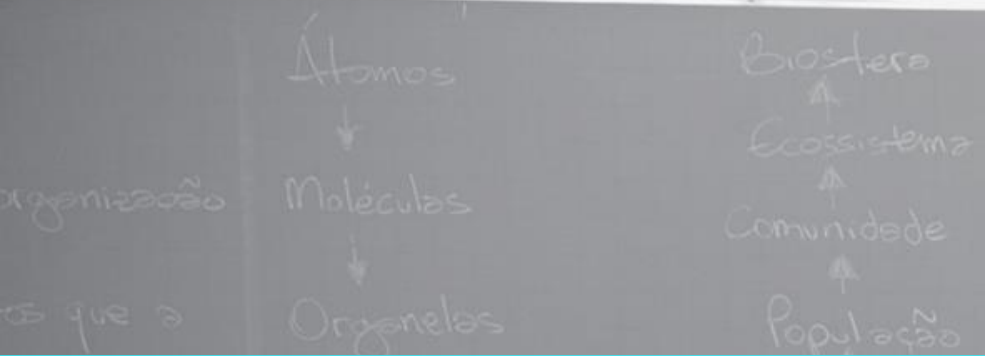 organização
os que a
Átomos
Moléculas
Organelas
Biosfera
Ecossistema
Comunidade
População